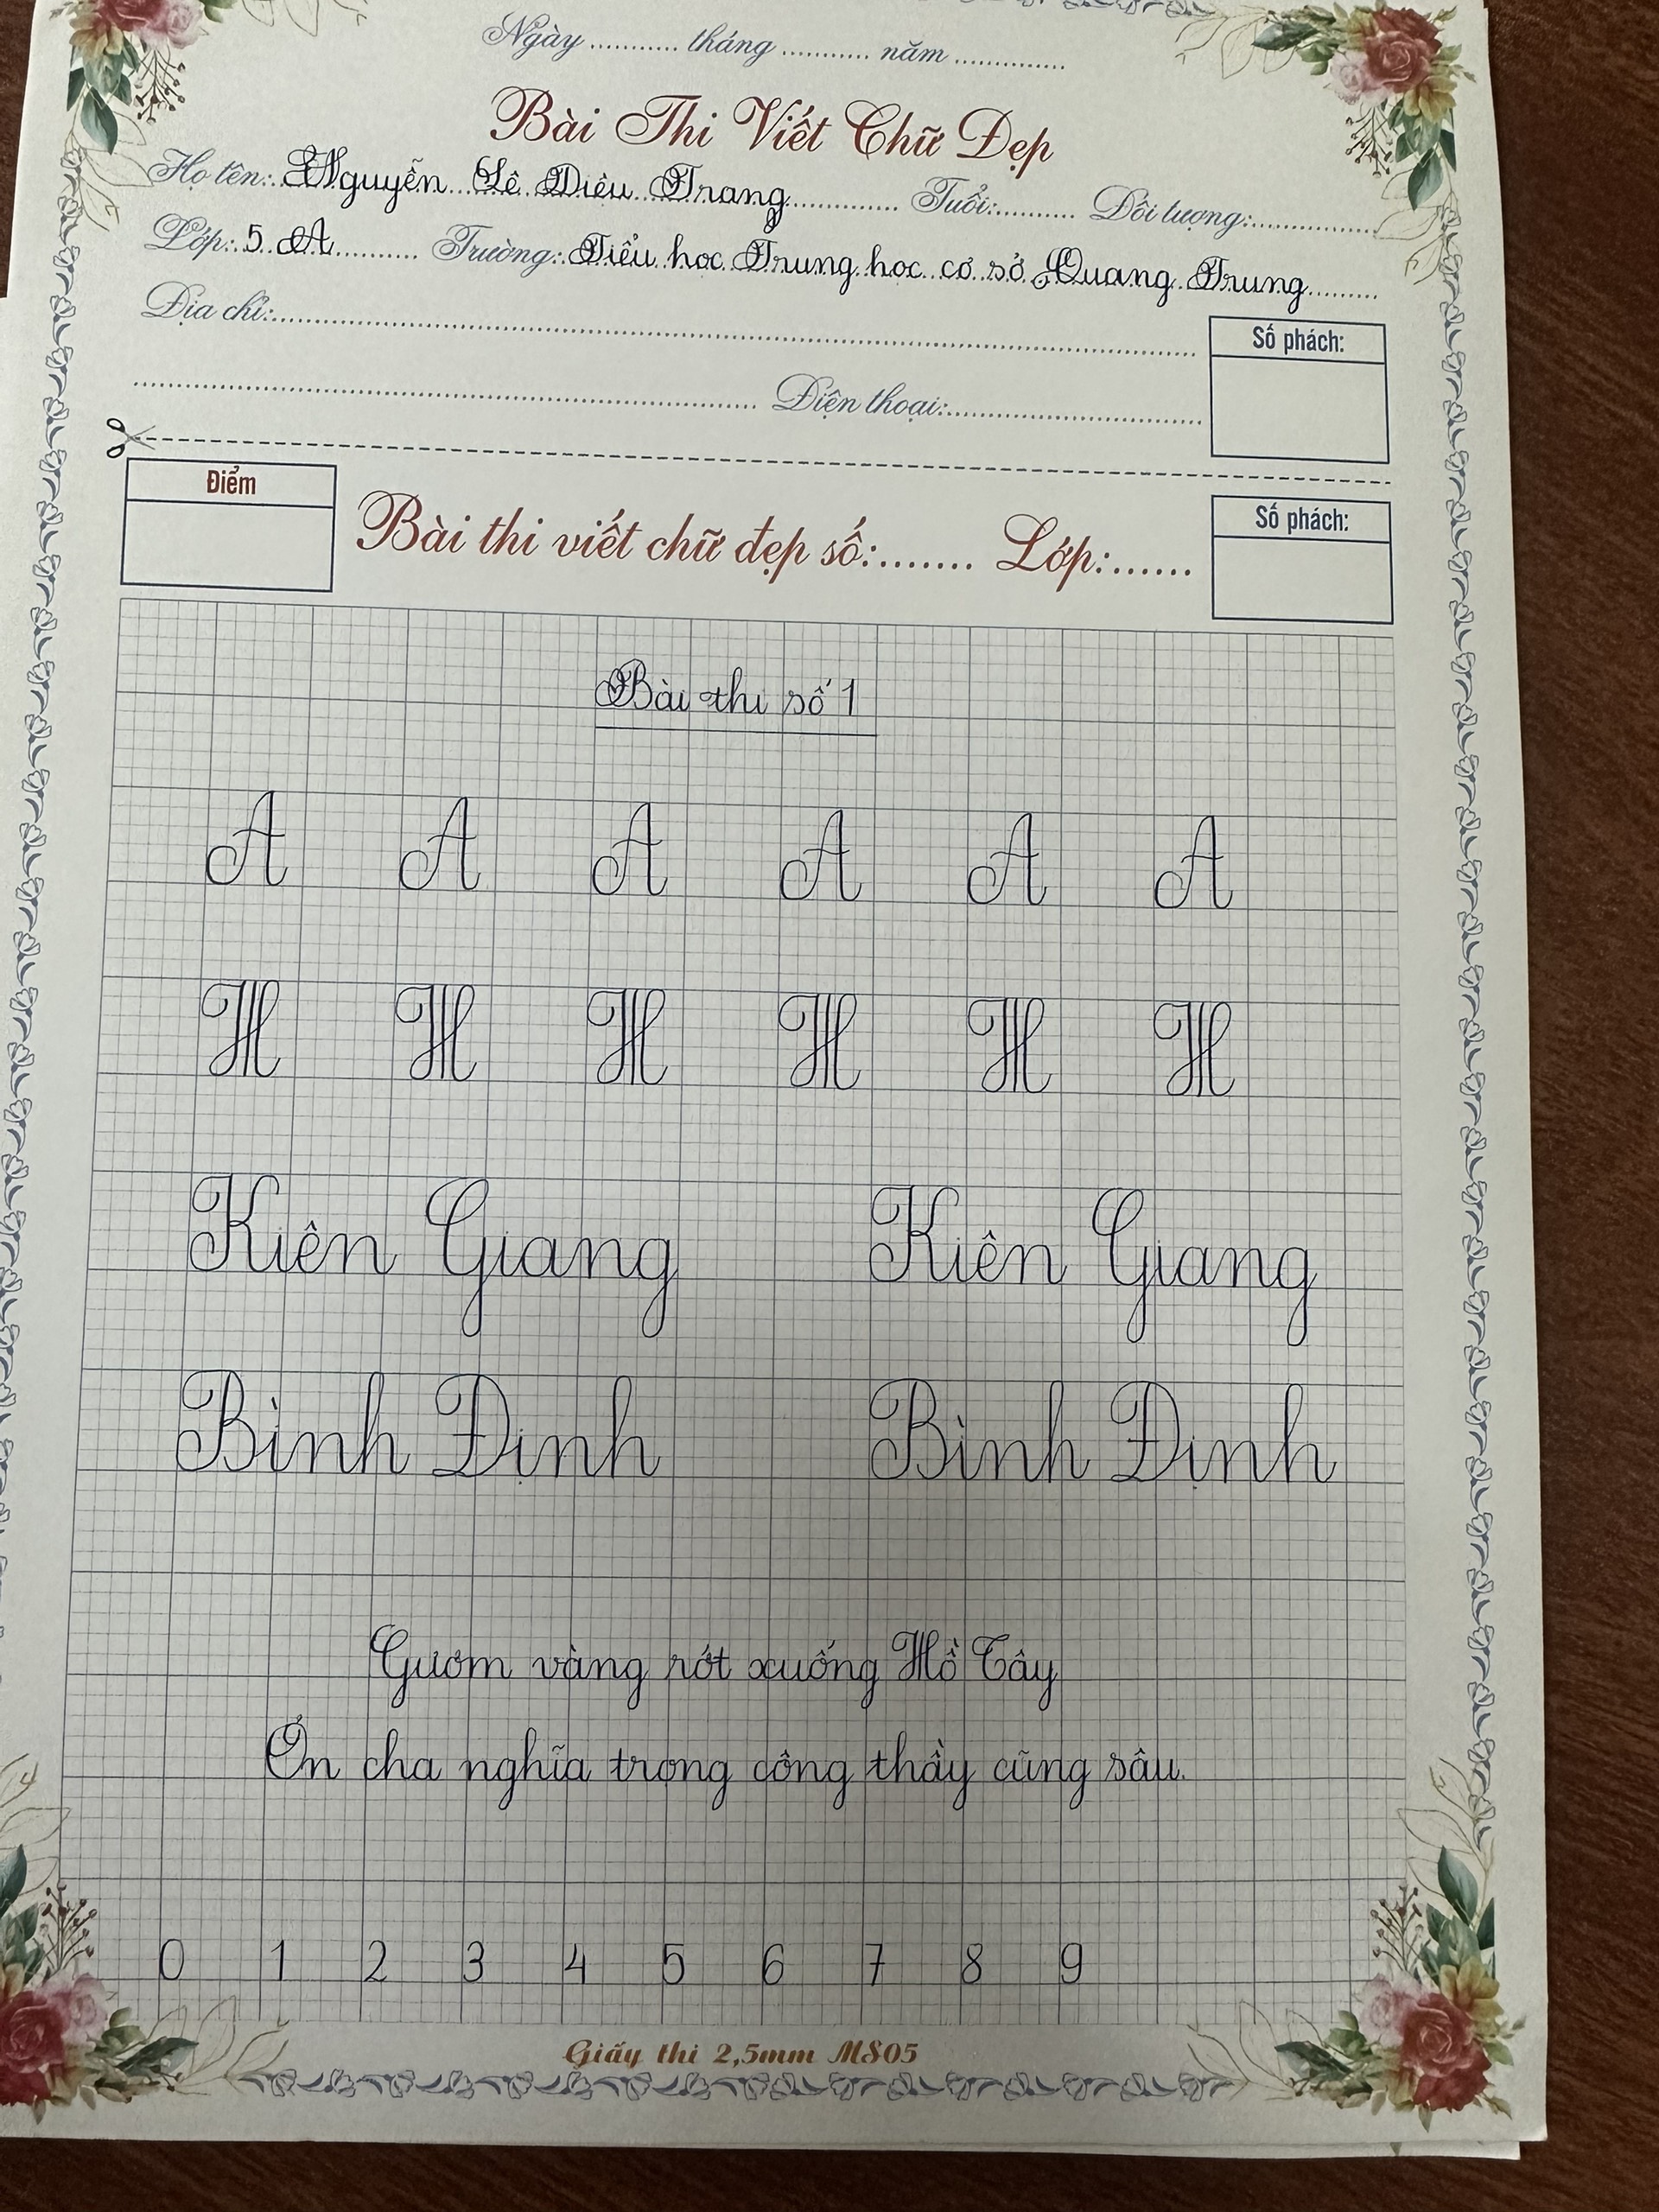 Ngày ........... tháng ........... năm ..............
Bài Thi Viết Chữ Đẹp
Họ tên: Nguyễn Lê Diệu Trang Tuổi: .......... Đối tượng: ..............
Lớp: 5 A Trường: Tiểu học Trung học cơ sở Quang Trung
Địa chỉ: ..............
Số phách:
Điện thoại: ..............
Điểm
Bài thi viết chữ đẹp số:........ Lớp:......
Số phách:
Bài thi số 1
A A A A A A
H H H H H H
Kiên Giang Kiên Giang
Bình Định Bình Định
Gươm vàng rớt xuống Hồ Tây
Ơn cha nghĩa trọng công thầy cũng sâu.
0 1 2 3 4 5 6 7 8 9
Giấy thi 2,5mm MS05